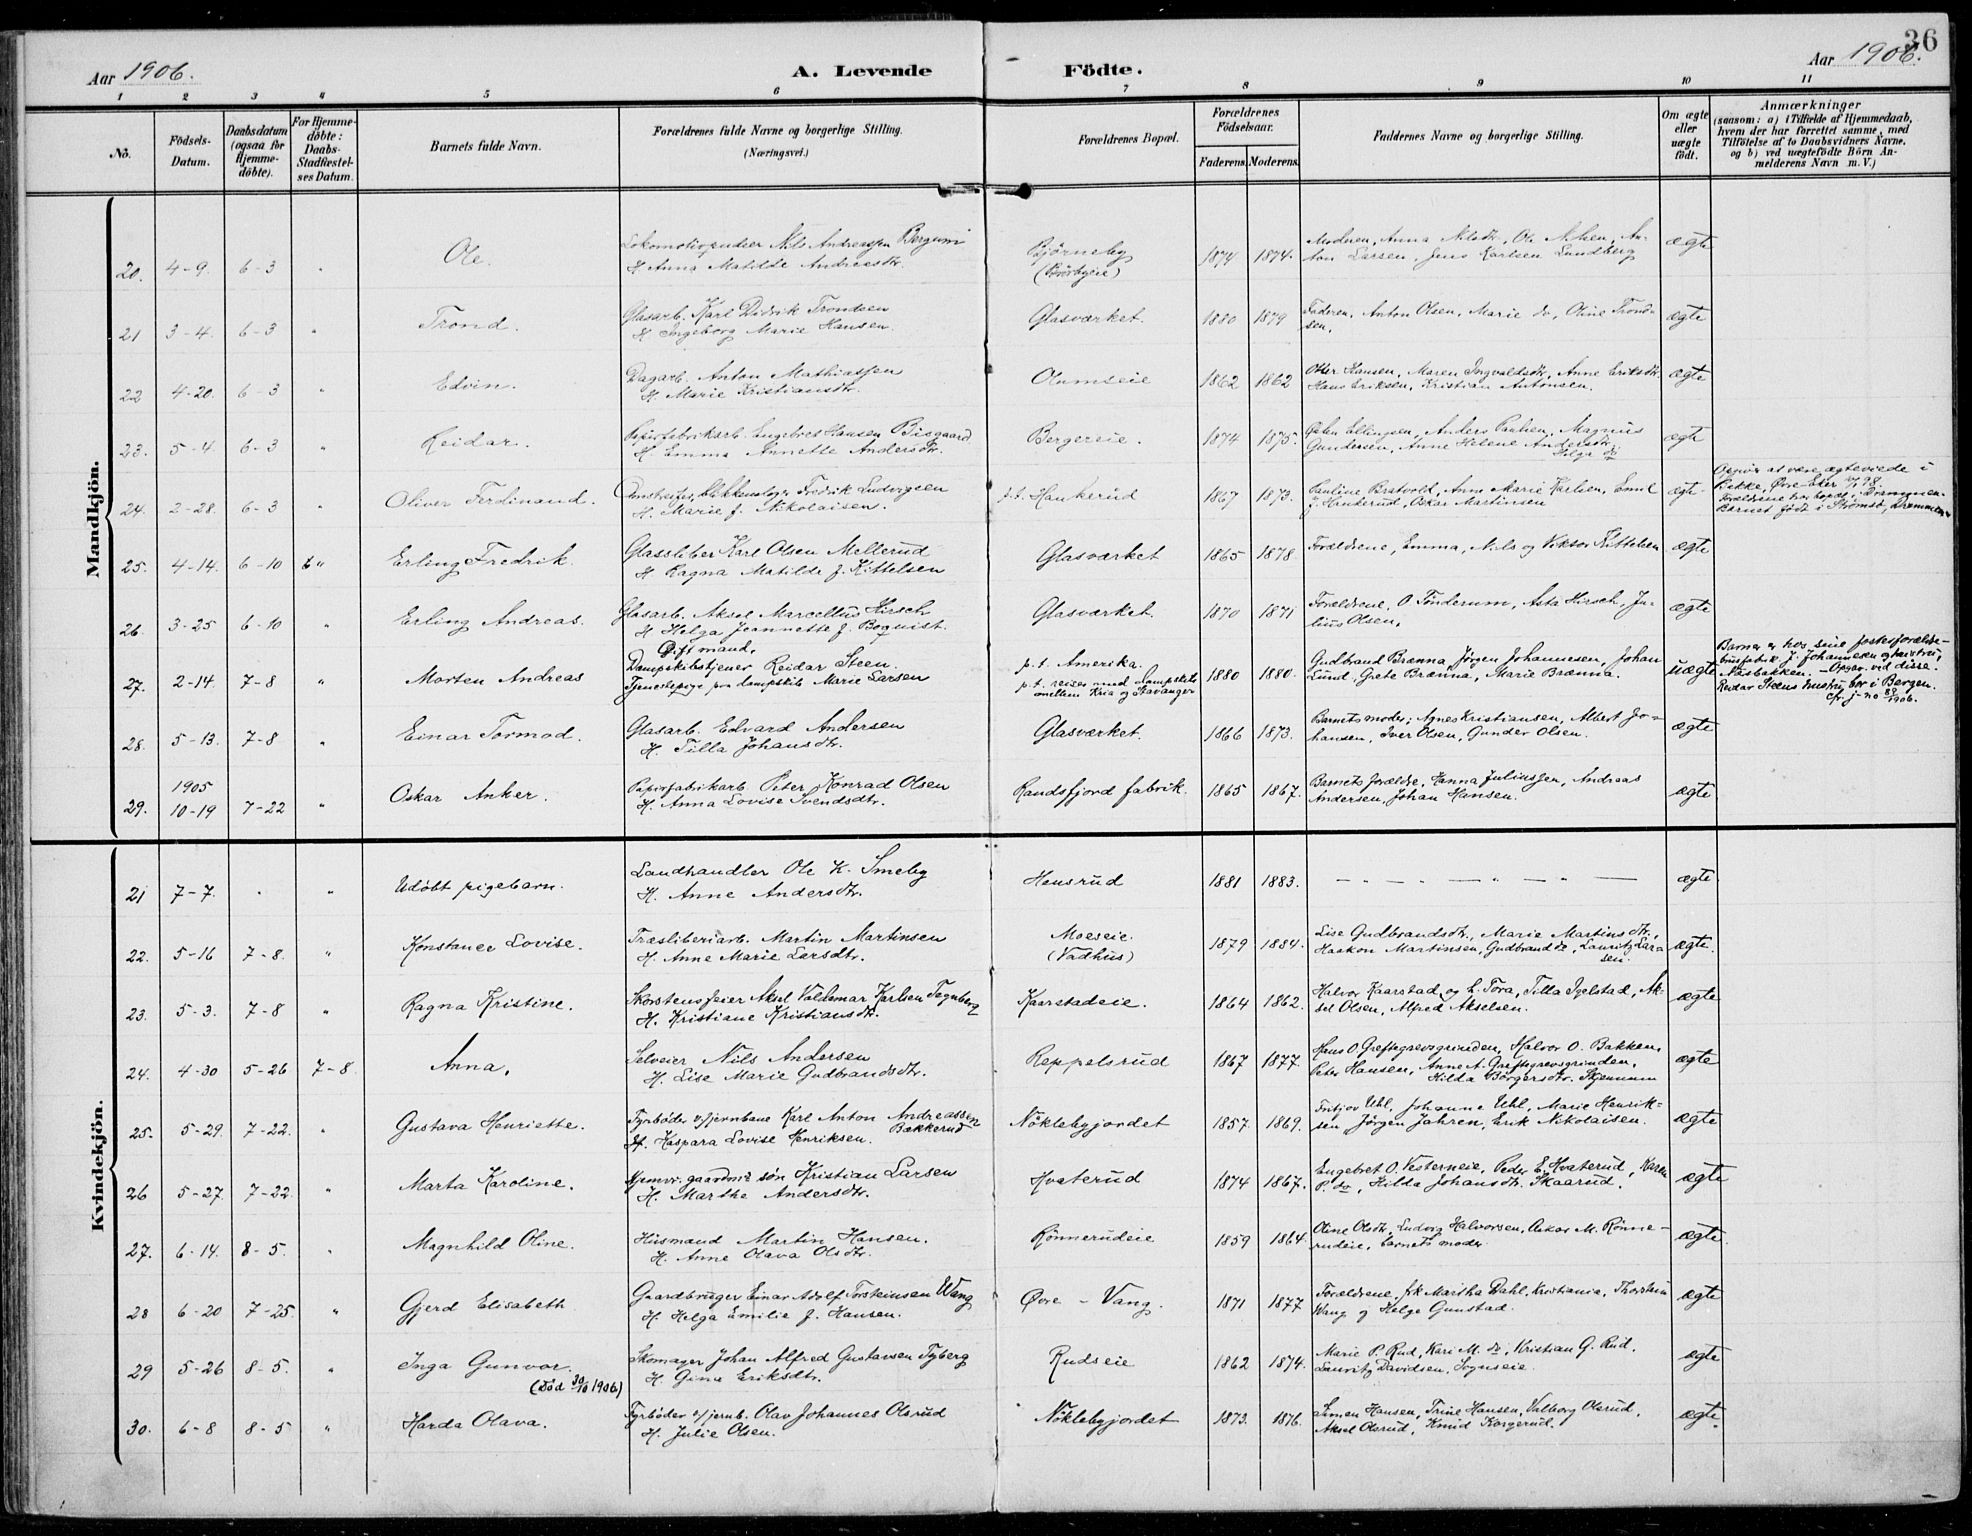 36
Aar 1906.
A. Levende
Födte.
Aar 1906.
1 2 3 4 5 6 7 8 9 10 11
No.
Födsels-Datum.
Daabsdatum (ogsaa for Hjemmedöbte).
For Hjemmedöbte: Daabs-Stadfæstelses Datum.
Barnets fulde Navn.
Forældrenes fulde Navne og borgerlige Stilling.
(Næringsvei.)
Forældrenes Bopæl.
Forældrenes Födselsaar.
Faderens. Moderens.
Faddernes Navne og borgerlige Stilling.
Om ægte eller uægte födt.
Anmærkninger
(saasom: a) i Tilfælde af Hjemmedaab, hvem der har forrettet samme, med Tilföielse af to Daabsvidners Navne, og b) ved uægtefödte Börn Anmelderens Navn m. V.)
Mandkjön.
20. 4-9. 6-3 " Ole. Nils Andreassen Bergum
H. Anna Matilde Andreasdtr. Björneby 1874 1874. Moderen, Anna Nilsdtr., Ole Nilsen, Anton Larsen, Jens Karlsen Lundberg ægte
21 3-4. 6-3 " Trond. Glasarb. Karl Didrik Trondsen
H. Ingeborg Marie Hansen. Glasværket. 1880 1879 Faderen, Anton Olsen, Marie do, Oline Trondsen, ægte
22 4-20. 6-3 " Edvin. Dagarb. Anton Mathiassen
H. Marie Kristiansdtr. Olumseie 1862 1862 Otter Hansen, Maren Ingvaldsdtr, Anne Eriksdtr. Hans Eriksen, Kristian Antonsen. ægte
23. 5-4. 6-3 " Reidar. Papirfabrikarb. Engebret Hansen Bisgaard
H. Emma Annette Andersdtr. Bergereie. 1874 1875. Ellingsen, Anders Paulsen, Magnus Gundersen, Anne Helene Andersdtr. Helga do ægte
24. 2-28. 6-3 " Oliver Ferdinand. blikkenslager Fredrik Ludvigsen
H. Marie f. Nikolaisen. p.t. Hankerud 1867 1873. Pauline Bratvold, Anne Marie Karlsen, Emil Oskar Martinsen ægte Opgir at være ægteviede i Bakke, Øvre Eker
Forældrene har boped i Drammen.
Barnet född i Strömsö, Drammen
25. 4-14. 6-10 " Erling Fredrik. Glassliber Karl Olsen Mellerud
H. Ragna Matilde f. Kittelsen Glasværket 1865 1878. Forældrene, Emma, Nils og Viktor Kittelsen ægte
26. 3-25 6-10 " Erling Andreas. Glasarb. Aksel Marcellus Hirsch
H. Helga Jeannette f. Boquist. Glasværket. 1870 1871 Forældrene, O. Tönderum, Asta Hirsch, Julius Olsen, ægte
27. 2-14. 7-8 " Morten Andreas Gift mand,
Dampskibstjener Reidar Steen.
Tjenestepige paa dampskib Marie Larsen p.t. Amerika.
p.t. reiser med dampskib mellem Kria og Stavanger 1880 1880. Gudbrand Brænna, Jörgen Johannesen, Johan Lund, Grete Brænna, Marie Brænna. uægte Barnet er hos sine fosterforældre J. Johannesen og hustru, Næsbakken. — Opgav. ved disse.
Reidar Steens hustru bor i Bergen.
cfr. j-no 89/1906.
28. 5-13. 7-8 " Einar Tormod. Glasarb. Edvard Andersen
H. Tilla Johansdtr. Glasværket. 1866 1873. Barnets moder; Agnes Kristiansen, Albert Johansen, Iver Olsen, Gunder Olsen. ægte
29. 1905 10-19 7-22 " Oskar Anker. Papirfabrikarb. Peter Konrad Olsen
H. Anna Lovise Svendsdtr. Randsfjord fabrik. 1865 1867. Barnets forældre, Hanna Juliussen, Andreas Andersen, Johan Hansen. ægte
Kvindekjön.
21 7-7. " " Udöbt pigebarn. Landhandler Ole K. Smeby
H. Anne Andersdtr. Hensrud 1881 1883. — — — " — — — ægte
22. 5-16 7-8. " Konstance Lovise. Træsliberiarb. Martin Martinsen
H. Anne Marie Larsdtr. Moeseie.
(Vadhus) 1879 1884. Lise Gudbrandsdtr., Marie Martinsdtr., Haakon Martinsen, Gudbrand do, Lauritz Larsen. ægte.
23. 5-3. 7-8 " Ragna Kristine. Skorstensfeier Aksel Valdemar Karlsen Tegnberg
H. Kristiane Kristiansdtr. Kaarstadeie. 1864 1862. Halvor Kaarstad og h. Tora, Tilla Igelstad, Aksel Olsen, Alfred Akselsen. ægte
24. 4-30 5-26 7-8. Anna. Selveier Nils Andersen
H. Lise Marie Gudbrandsdtr. Reppelsrud 1867 1877. Hans O. Greftegrevsgrinden, Halvor O. Bakken, Peter Hansen, Anne A. Greftegrevsgrinden, Hilda Börgersdtr. Skjennum ægte
25. 5-29. 7-22. " Gustava Henriette. Fyrböder v/jernbane Karl Anton Andreassen Bækkerud
H. Kaspara Lovise Henriksen. Nöklebyjordet 1857. 1869. Fritjov Uhl, Johanne Uhl, Marie Henriksen, Jörgen Jahren, Erik Nikolaisen. ægte
26 5-27. 7-22. " Marta Karoline. gaardm's sön Kristian Larsen
H. Marthe Andersdtr. Hvaterud 1874 1867. Engebret O. Vesterneie, Peder E. Hvaterud, Karen P. do, Hilda Johansdtr. Skaarud. ægte
27. 6-14. 8-5. " Magnhild Oline. Husmand Martin Hansen.
H. Anne Olava Olsdtr. Rönnerudeie 1859 1864. Oline Olsdtr, Ludvig Halvorsen, Oskar M. Rönnerudeie, barnets moder. ægte.
28 6-20 7-25. " Gjerd Elisabeth Gaardbruger Einar Adolf Torsteinsen Wang
H. Helga Emilie f. Hansen. Øvre - Vang. 1871 1877 Forældrene, frk Martha Dahl, Kristiania, Thorstein Wang og Helge Gunstad. ægte
29 5-26 8-5. " Inga Gunvor.
(Död 30/10 1906) Skomager Johan Alfred Gustavsen Nyberg
H. Gina Eriksdtr. Rudseie 1862 1874. Marie P. Rud, Kari M. do, Kristian G. Rud, Lauritz Davidsen, Sognseie. ægte
30. 6-8 8-5 " Harda Olava. Fyrböder v/jernb. Olav Johannes Olsrud
H. Julie Olsen. Nöklebyjordet 1873. 1876. Simen Hansen, Trine Hansen, Valborg Olsrud, Aksel Olsrud, Knud Korgerud. ægte.